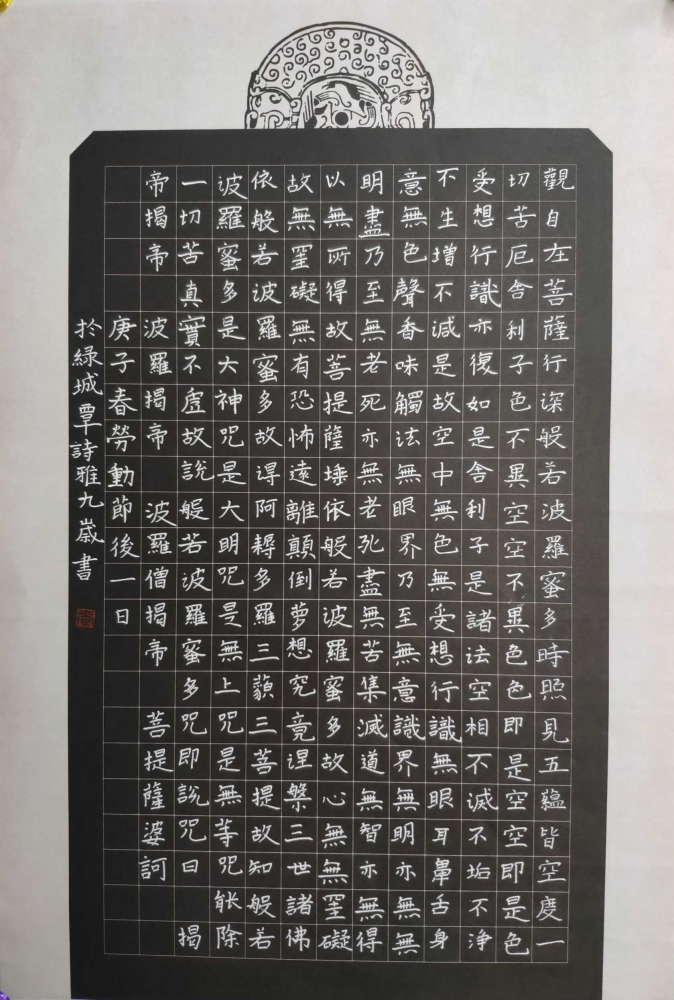 觀自在菩薩行深般若波羅蜜多時照見五蘊皆空度一
切苦厄舍利子色不異空空不異色色即是空空即是色
受想行識亦復如是舍利子是諸法空相不滅不垢不淨
不生增不減是故空中無色無受想行識無眼耳鼻舌身
意無色聲香味觸法無眼界乃至無意識界無明亦無無
明盡乃至無老死亦無老死盡無苦集滅道無智亦無得
以無所得故菩提薩埵依般若波羅蜜多故心無無罣礙
故無罣礙無有恐怖遠離顛倒夢想究竟涅槃三世諸佛
依般若波羅蜜多故得阿耨多羅三藐三菩提故知般若
波羅蜜多是大神咒是大明咒是無上咒是無等咒能除
一切苦真實不虛故說般若波羅蜜多咒即說咒曰 揭
帝揭帝 波羅揭帝 波羅僧揭帝 菩提薩婆訶
庚子春勞動節後一日
於綠城覃詩雅九歲書